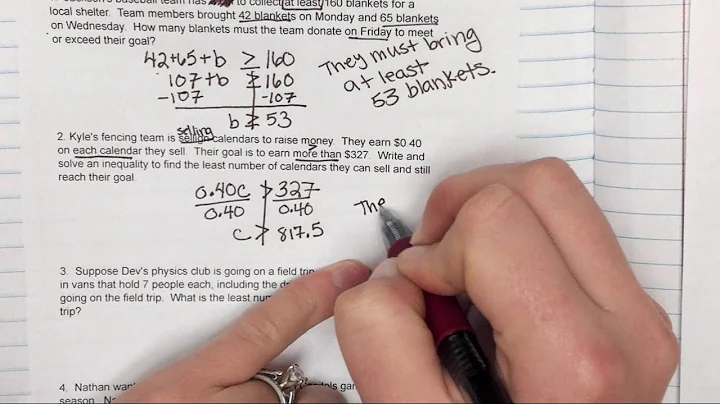 to collect at least 160 blankets for a
local shelter. Team members brought 42 blankets on Monday and 65 blankets
on Wednesday. How many blankets must the team donate on Friday to meet
or exceed their goal?
42+65+b ≥ 160
107+b ≥ 160
-107 -107
b ≥ 53
They must bring
at least
53 blankets.
selling
2. Kyle's fencing team is calendars to raise money. They earn $0.40
on each calendar they sell. Their goal is to earn more than $327. Write and
solve an inequality to find the least number of calendars they can sell and still
reach their goal.
0.40c > 327
0.40 0.40
c > 817.5
The
3. Suppose Dev's physics club is going on a field trip
in vans that hold 7 people each, including the
going on the field trip. What is the least
trip?
4. Nathan
season.